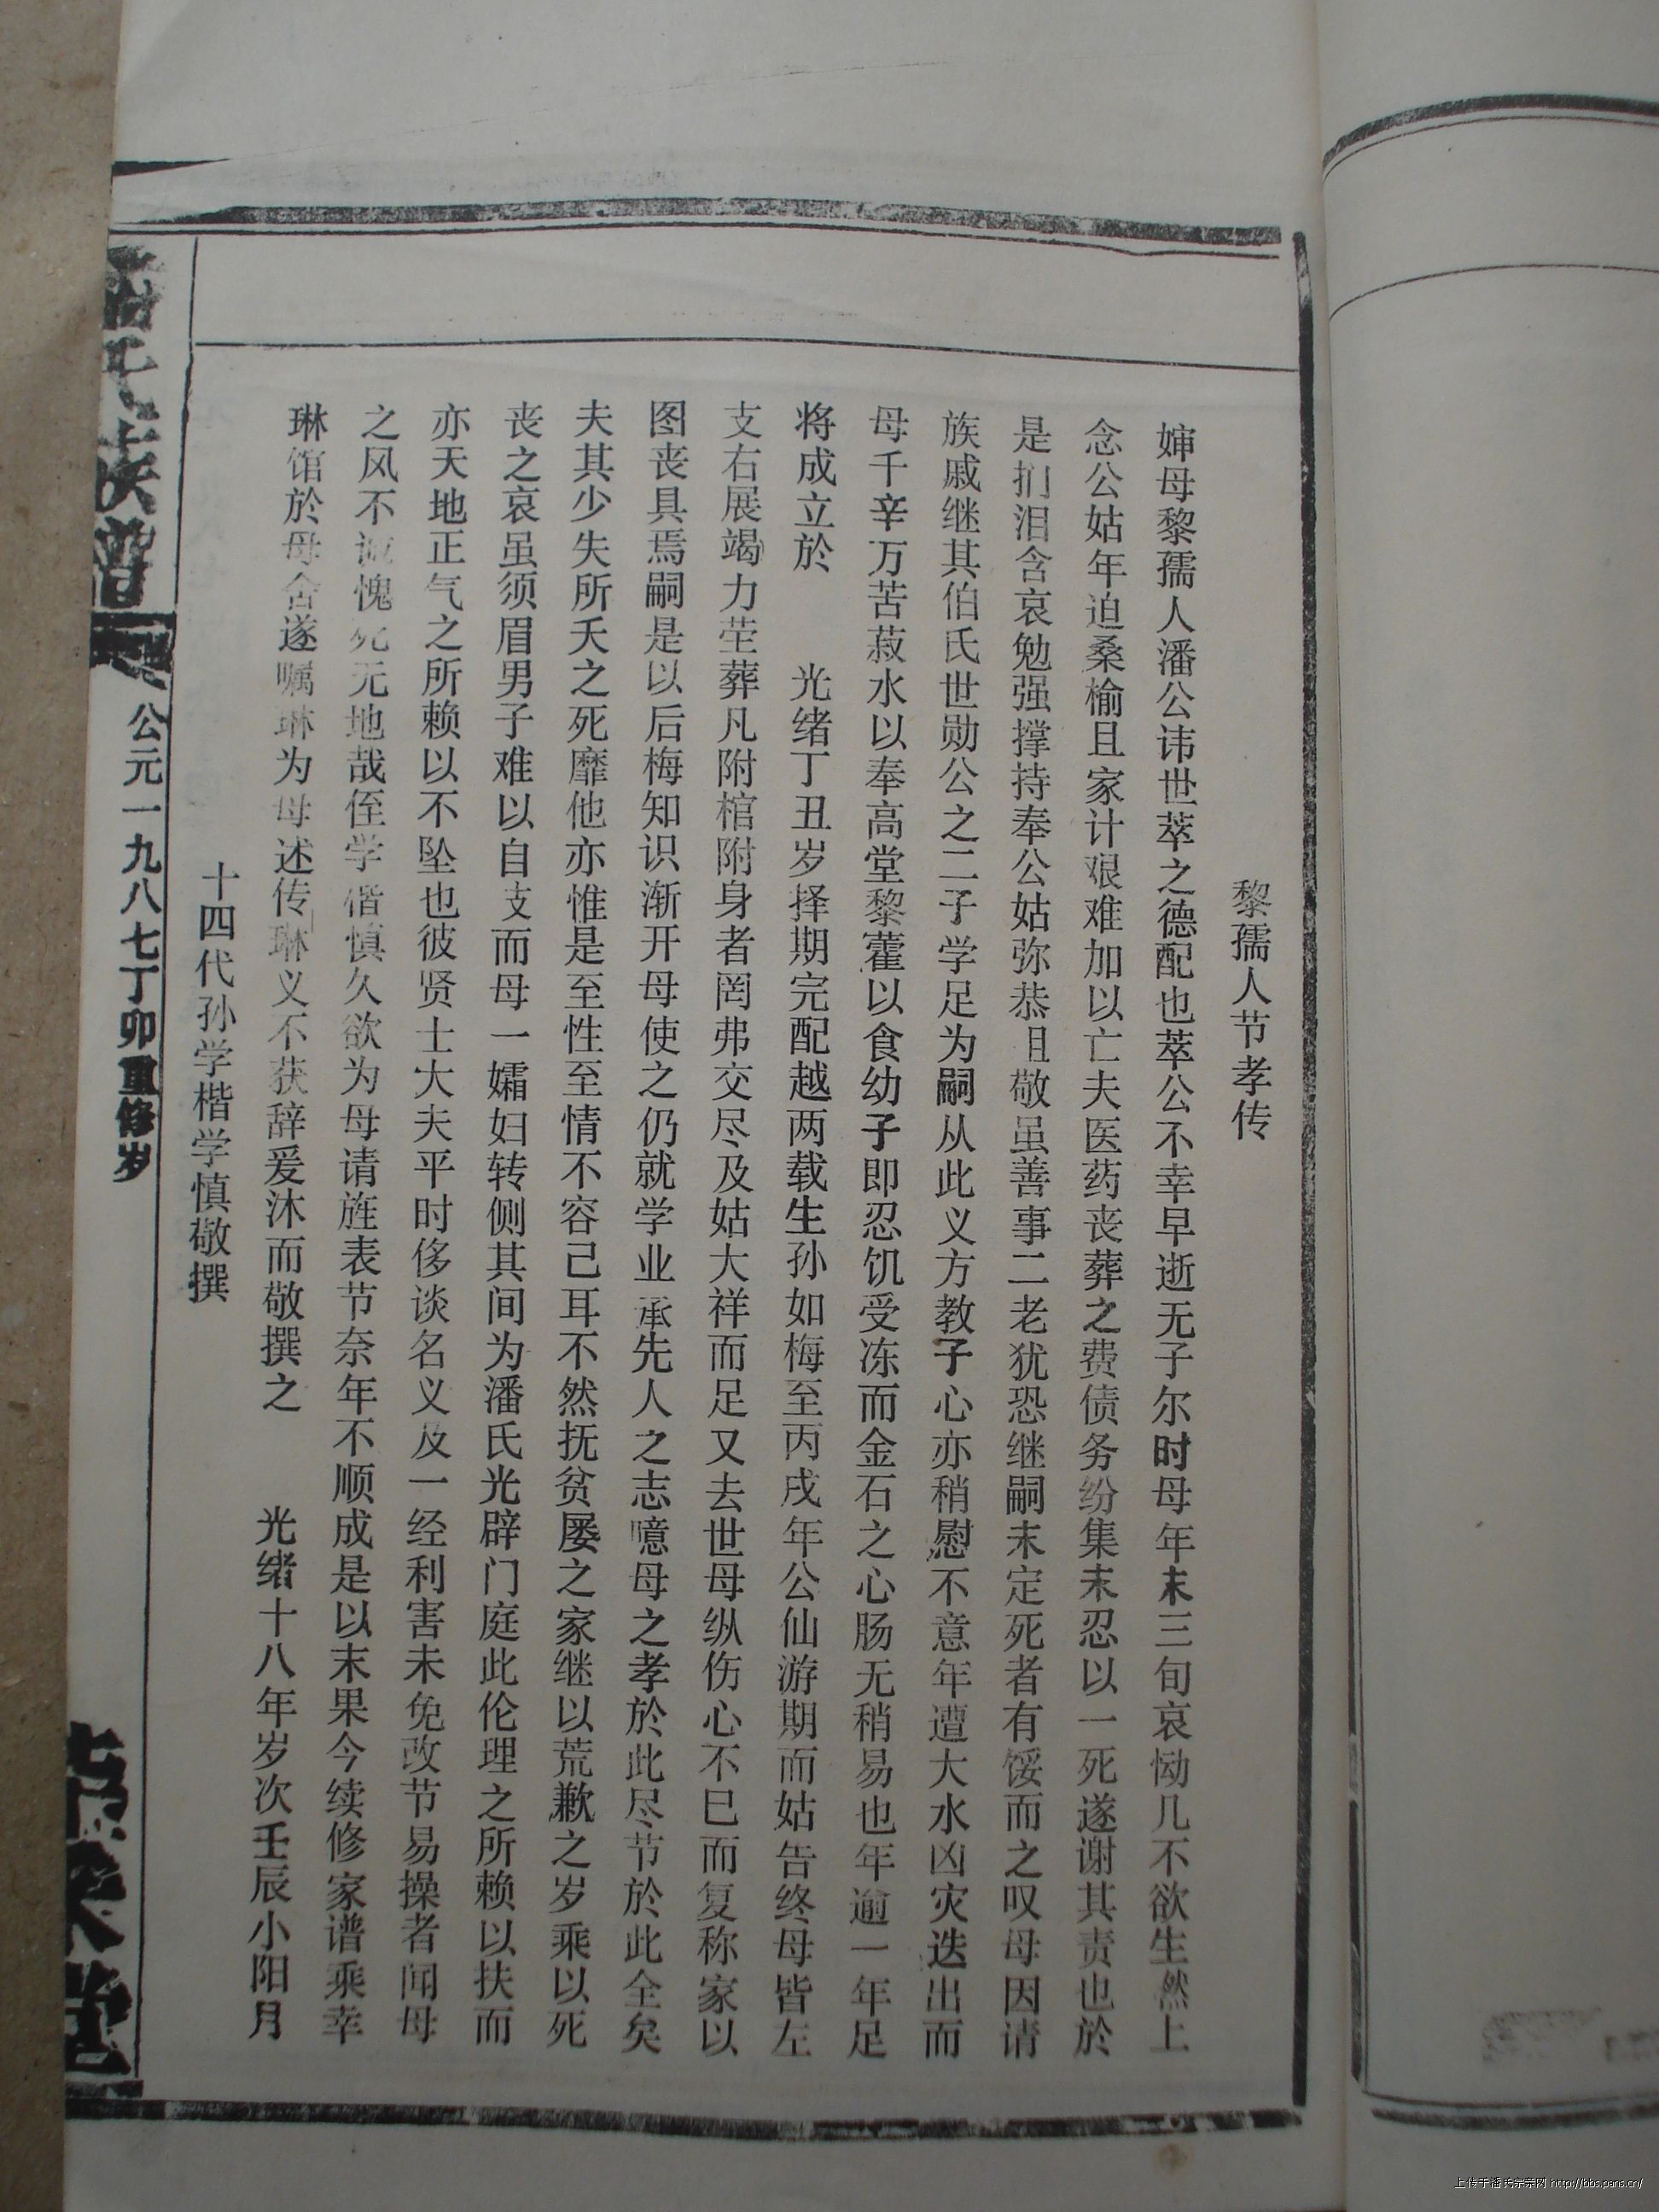 黎孺人节孝传
婶母黎孺人潘公讳世萃之德配也萃公不幸早逝无子尔时母年末三旬哀恸几不欲生然上
念公姑年迫桑榆且家计艰难加以亡夫医药丧葬之费债务纷集末忍以一死遂谢其责也於
是扪泪含哀勉强撑持奉公姑弥恭且敬虽善事二老犹恐继嗣末定死者有馁而之叹母因请
族戚继其伯氏世勋公之二子学足为嗣从此义方教子心亦稍慰不意年遭大水凶灾迭出而
母千辛万苦菽水以奉高堂黎藿以食幼子即忍饥受冻而金石之心肠无稍易也年逾一年足
将成立於 光绪丁丑岁择期完配越两载生孙如梅至丙戌年公仙游期而姑告终母皆左
支右展竭力茔葬凡附棺附身者罔弗交尽及姑大祥而足又去世母纵伤心不巳而复称家以
图丧具焉嗣是以后梅知识渐开母使之仍就学业承先人之志噫母之孝於此尽节於此全矣
夫其少失所天之死靡他亦惟是至性至情不容己耳不然抚贫屡之家继以荒歉之岁乘以死
丧之哀虽须眉男子难以自支而母一孀妇转侧其间为潘氏光辟门庭此伦理之所赖以扶而
亦天地正气之所赖以不坠也彼贤士大夫平时侈谈名义及一经利害未免改节易操者闻母
之风不诚愧死无地哉侄学偕慎久欲为母请旌表节奈年不顺成是以末果今续修家谱乘幸
琳馆於母舍遂嘱琳为母述传琳义不获辞爰沐而敬撰之 光绪十八年岁次壬辰小阳月
十四代孙学楷学慎敬撰
氏族谱
公元一九八七丁卯重修岁
堂
上传于潘氏宗亲网 http://bbs.pans.cn/